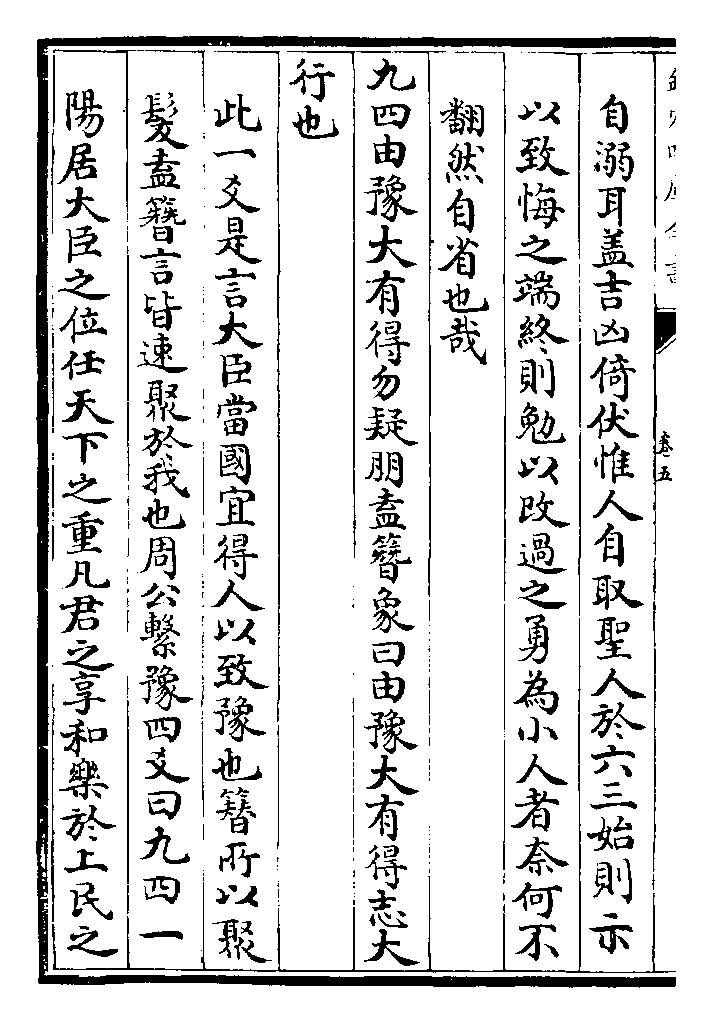 欽定四庫全書
卷五
自溺耳盖吉凶倚伏惟人自取聖人於六三始則示
以致悔之端終則勉以改過之勇為小人者奈何不
翻然自省也哉
九四由豫大有得勿疑朋盍簪象曰由豫大有得志大
行也
此一爻是言大臣當國宜得人以致豫也簪所以聚
髮盍簪言皆速聚於我也周公繫豫四爻曰九四一
陽居大臣之位任天下之重凡君之享和樂於上民之